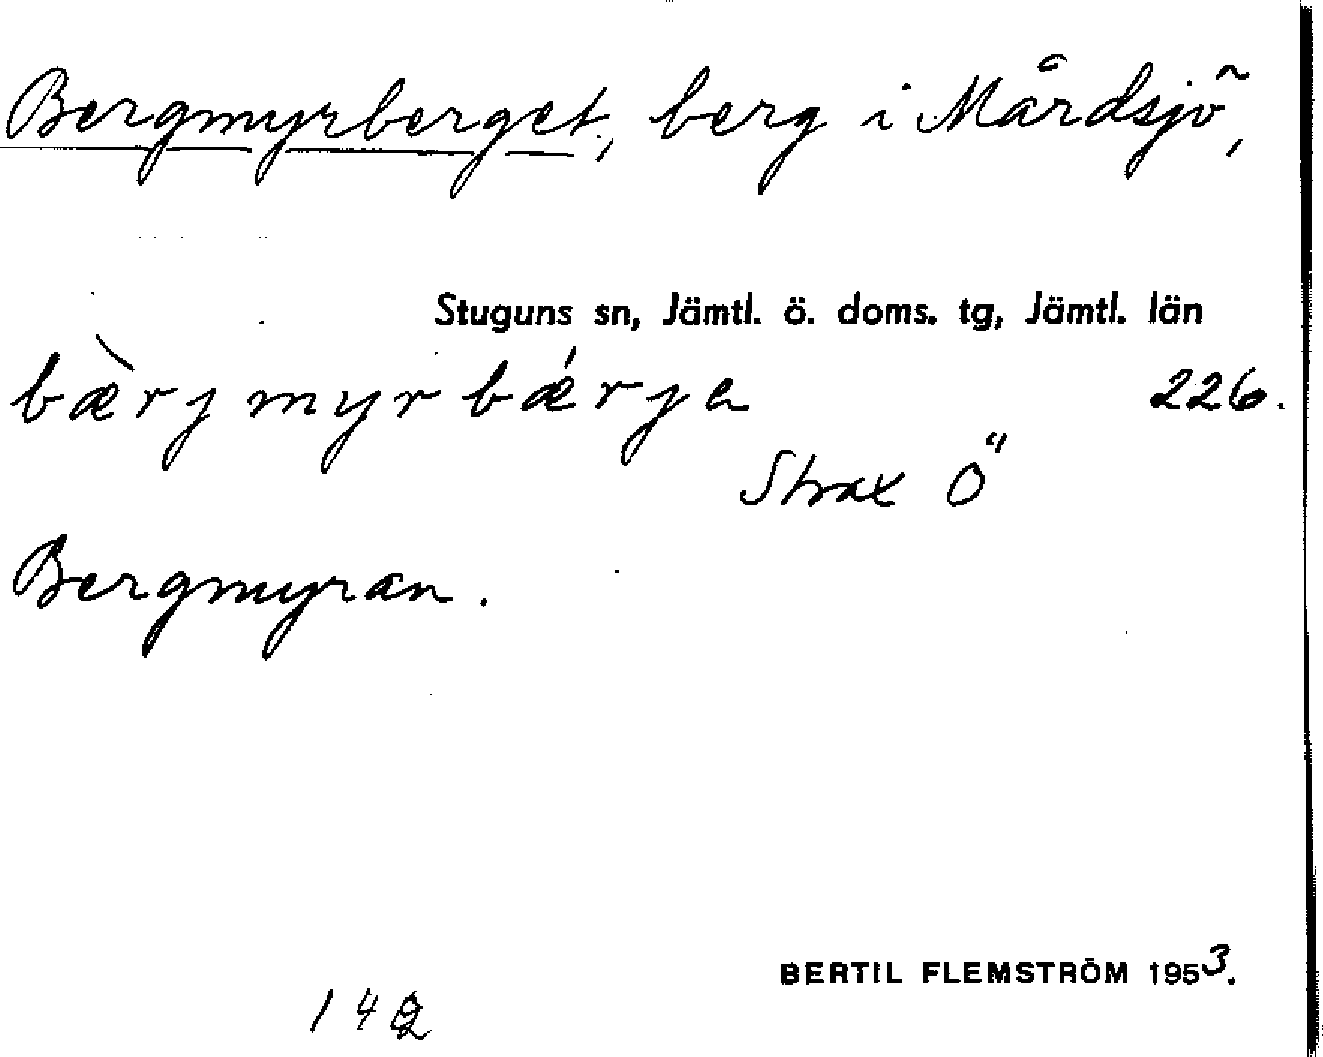 Bergmyrberget, berg i Mårdsjö,
Stuguns sn, Jämtl. ö. doms. tg, Jämtl. län
bæ̀rjmyrbǽrje 226.
Strax Ö
Bergmyran.
BERTIL FLEMSTRÖM 1953.
142